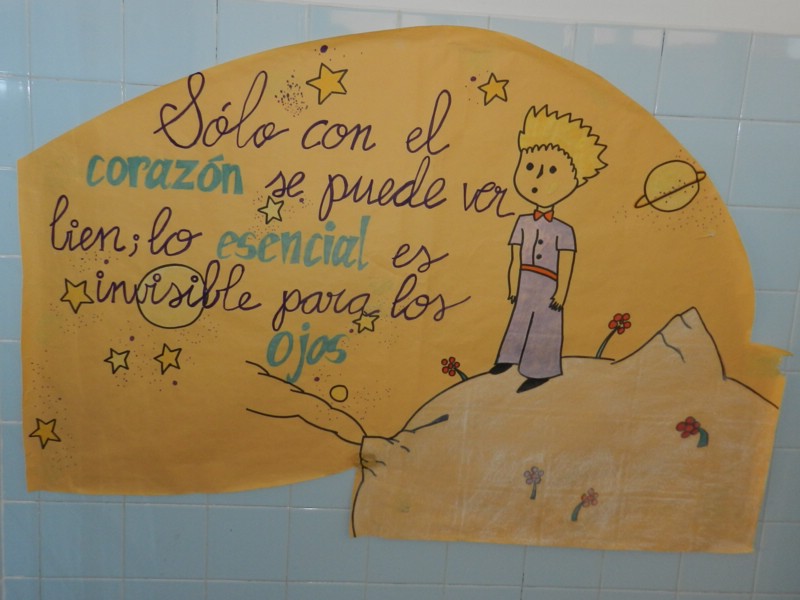 Sólo con el
corazón se puede ver
bien; lo esencial es
invisible para los
ojos